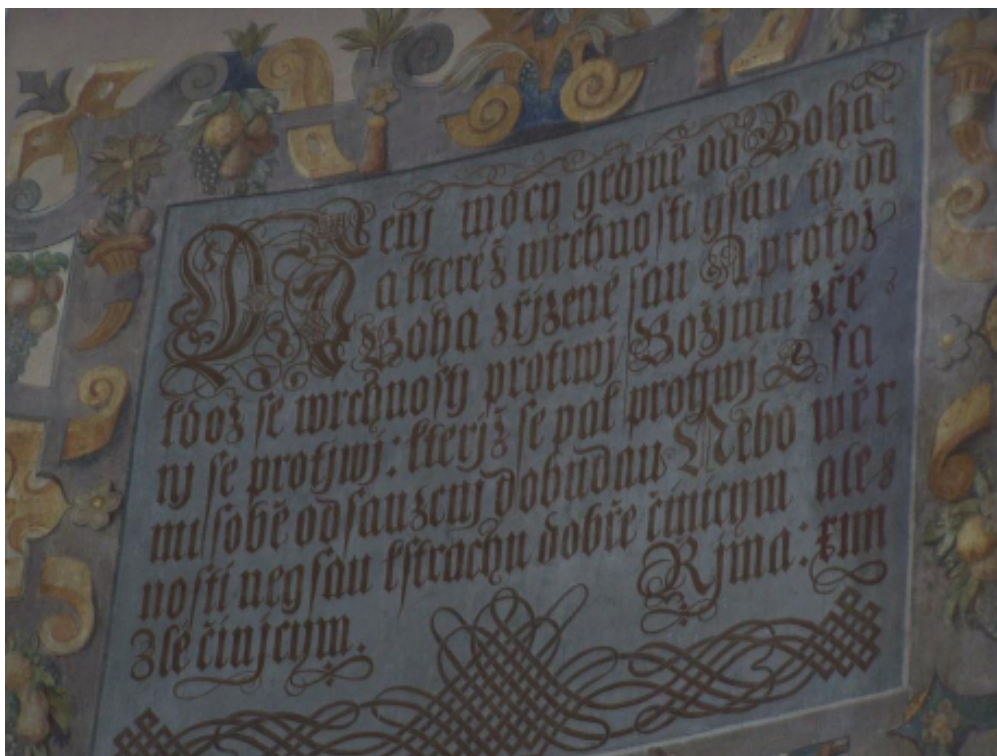 Nenj mocy gedjné od Boha:
a kteréž wrchnosti gsau ty od
Boha zřjzené sau A protož
kdož se wrchnosty protiwj Božjmu zřé
nj se protjwj: kterjž se pak protjwj
mi sobě odsauzenj dobudau Nebo wěr
nosti negsau kstrachu dobře činicym ale
Zle činjcym.
Rjma: xiii